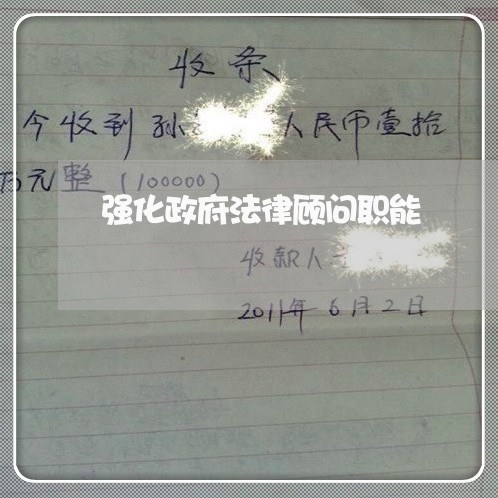 收条
今收到孙 人民币壹拾
万元整(100000)
强化政府法律顾问职能
收款人
2011年6月2日